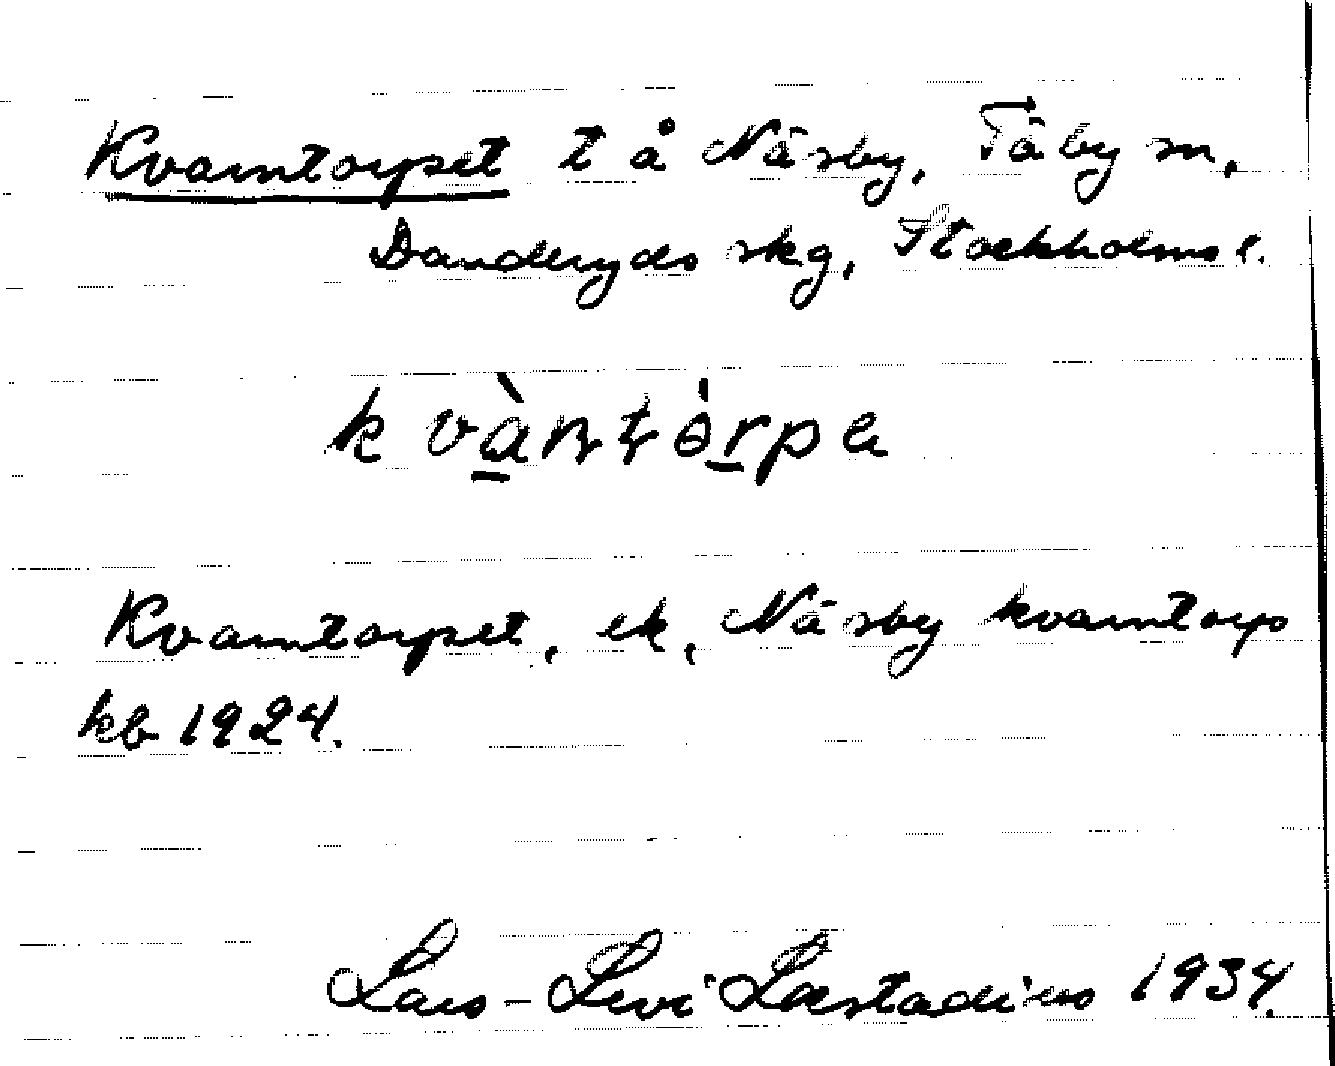 Kvarntorpet t å Näsby, Täby sn,
Danderyds skg, Stockholms l.
kvàɳʈórpa
Kvarntorpet, ek, Näsby kvarntorp
kb 1924.
Lars-Levi Læstadius 1934.